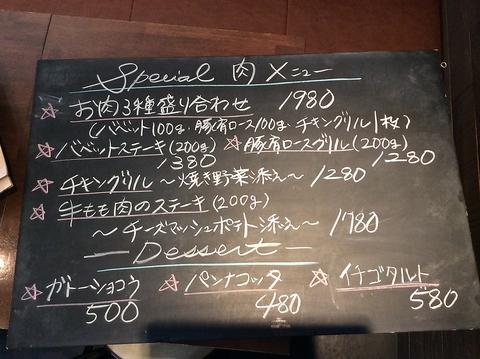 Special 肉メニュー
☆ お肉3種盛り合わせ 1980
(バベット100g・豚肩ロース100g・チキングリル1枚)
☆ バベットステーキ(200g) ☆ 豚肩ロースグリル(200g)
1380 1280
☆ チキングリル ～焼き野菜添え～ 1280
☆ 牛もも肉のステーキ(200g)
～チーズマッシュポテト添え～ 1780
－Dessert－
☆ ガトーショコラ ☆ パンナコッタ ☆ イチゴタルト
500 480 580